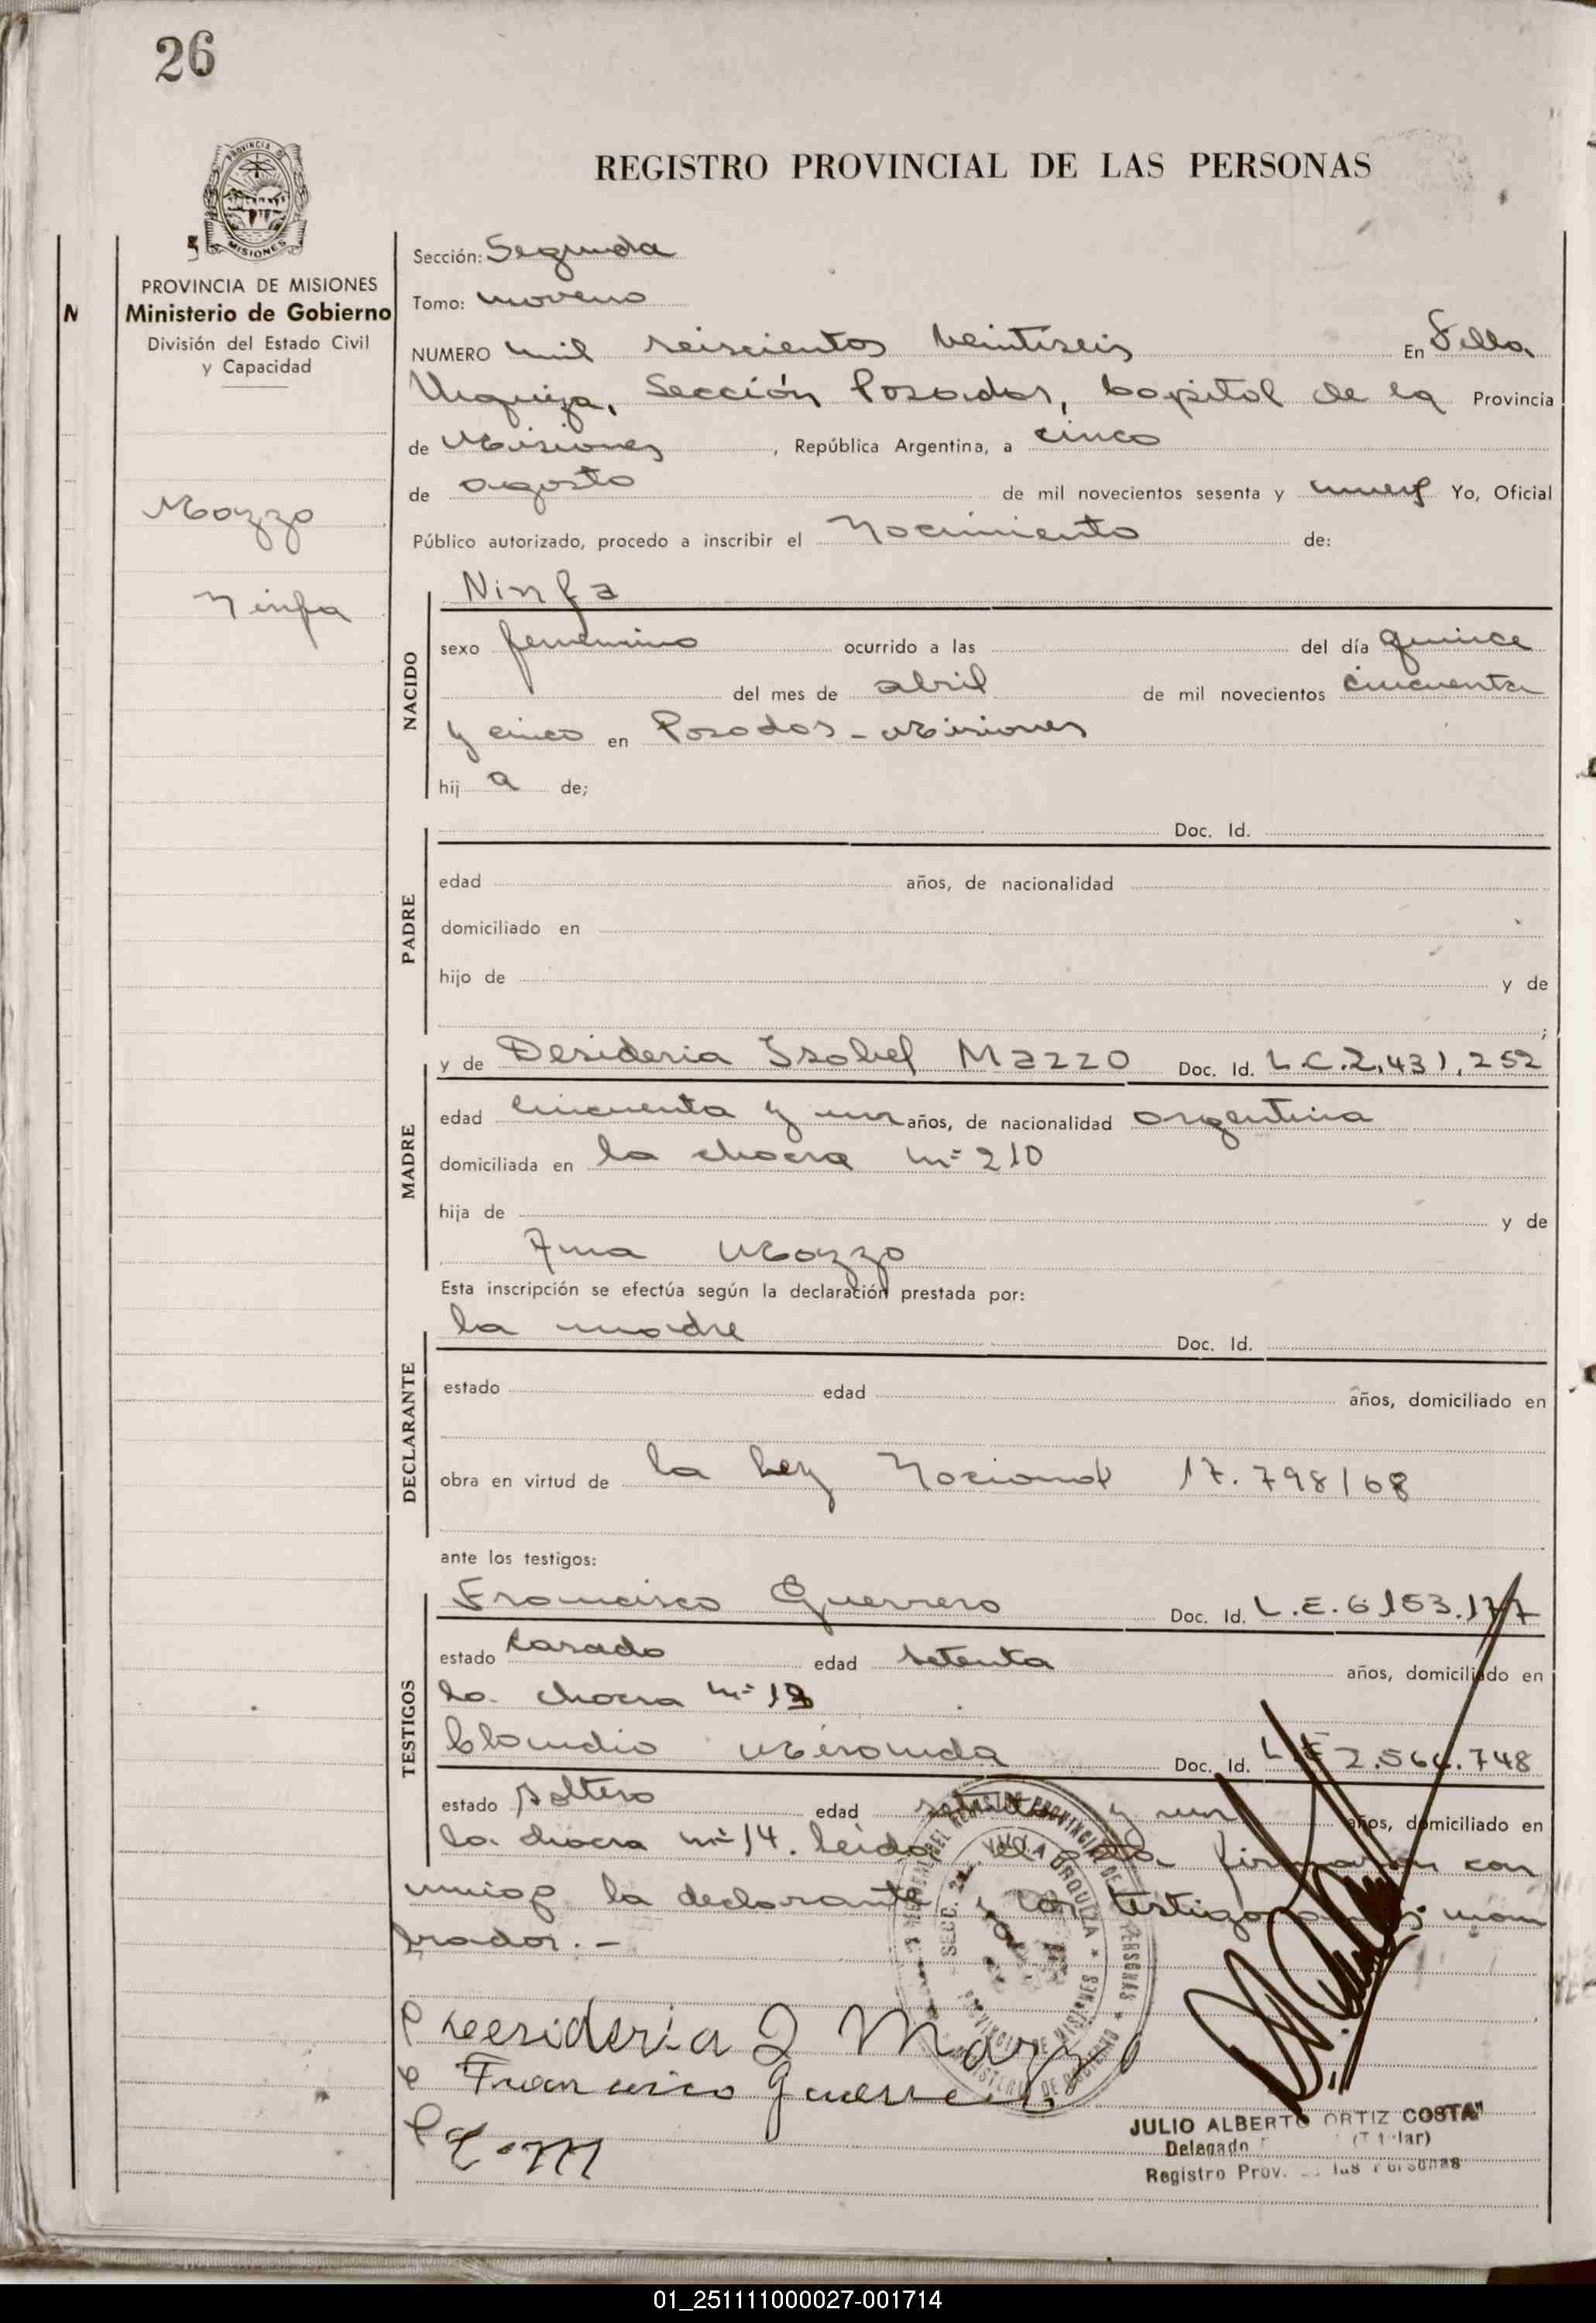 26
REGISTRO PROVINCIAL DE LAS PERSONAS
PROVINCIA DE
MISIONES
PROVINCIA DE MISIONES
Ministerio de Gobierno
División del Estado Civil
y Capacidad
Mazzo
Ninfa
Sección: Segunda
Tomo: noveno
NUMERO mil seiscientos veintiseis En Villa
Urquiza, Sección Posadas, Capital de la Provincia
de Misiones, República Argentina, a cinco
de agosto de mil novecientos sesenta y nueve Yo, Oficial
Público autorizado, procedo a inscribir el Nacimiento de:
NACIDO
Ninfa
sexo femenino ocurrido a las del día quince
del mes de abril de mil novecientos cincuenta
y cinco en Posadas - Misiones
hij a de;
PADRE
Doc. Id.
edad años, de nacionalidad
domiciliado en
hijo de y de
;
MADRE
y de Desideria Isabel Mazzo Doc. Id. L.C.2.431.252
edad cincuenta y un años, de nacionalidad argentina
domiciliada en la chacra nº 210
hija de y de
Ana Mazzo
Esta inscripción se efectúa según la declaración prestada por:
DECLARANTE
la madre Doc. Id.
estado edad años, domiciliado en
obra en virtud de la Ley Nacional 17.798/68
ante los testigos:
TESTIGOS
Francisco Guerrero Doc. Id. L.E.6153.177
estado casado edad setenta años, domiciliado en
la chacra nº
Claudio Miranda Doc. Id. L.E 2.566.748
estado soltero edad setenta y un años, domiciliado en
la chacra nº 14. Leida el acta firmaron con
migo la declarante y los testigos antes nom
brados. -
Desideria I Mazzo
Francisco Guerrero
C.M
SECC. 2a. VILLA URQUIZA * PROVINCIA DE MISIONES *
JULIO ALBERTO ORTIZ COSTA
Delegado (Titular)
Registro Prov. de las Personas
01_251111000027-001714